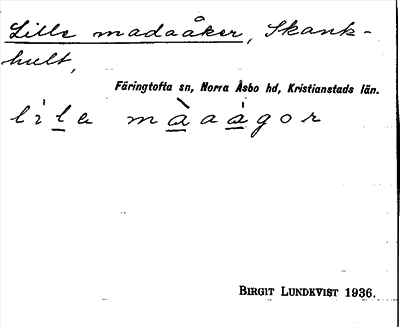 Lille madaåker, Skank-
hult,
Färingtofta sn, Norra Åsbo hd, Kristianstads län.
lìla màaágor
BIRGIT LUNDKVIST 1936.